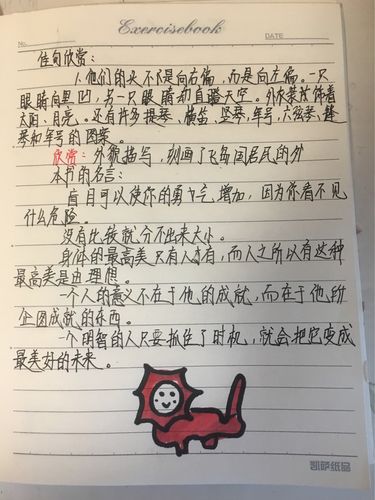 Exercisebook
No.
DATE
佳句欣赏：
1.他们的头不是向右偏，而是向左偏。一只
眼睛向里凹，另一只眼睛却直瞪天空。外衣装饰着
太阳、月亮。还有许多提琴、横笛、竖琴、军号、六弦琴、键
琴和军号的图案。
欣赏：外貌描写，刻画了飞岛国居民的外
本书的名言：
盲目可以使你的勇气增加，因为你看不见
什么危险。
没有比较就分不出来大小。
身体的最高美只有人才有，而人之所以有这种
最高美是由理想。
一个人的意义不在于他的成就，而在于他所
企图成就的东西。
一个明智的人只要抓住了时机，就会把它变成
最美好的未来。
凯萨纸品